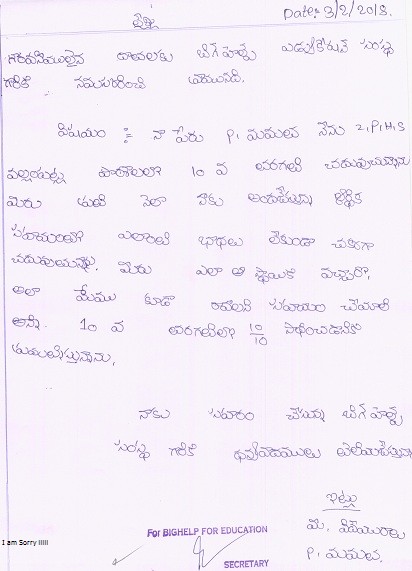 Date: 3/2/2018.
లేఖ
గౌరవనీయులైన దాతలకు బిగ్ హెల్ప్ ఎడ్యుకేషన్ సంస్థ
గారికి నమస్కరించి వ్రాయునది.
విషయం :- నా పేరు P. మమత నేను Z.P.H.S
పల్లగుట్ట పాఠశాలలో 10 వ తరగతి చదువుచున్నాను
మీరు ప్రతి నెలా నాకు అందజేస్తున్న ఆర్థిక
సహాయంతో ఎలాంటి బాధలు లేకుండా చక్కగా
చదువుతున్నా. మీరు ఎలా ఆ స్థాయికి వచ్చారో,
అలా మేము కూడా రావాలని సహాయం చేయాలి
అన్ని. 10 వ తరగతిలో 10/10 సాధించడానికి
ప్రయత్నిస్తున్నాను.
నాకు సహాయం చేస్తున్న బిగ్ హెల్ప్
సంస్థ గారికి ధన్యవాదములు తెలియజేస్తున్నాను
ఇట్లు
మీ విధేయురాలు
P. మమత.
For BIGHELP FOR EDUCATION
I am Sorry !!!!!
SECRETARY